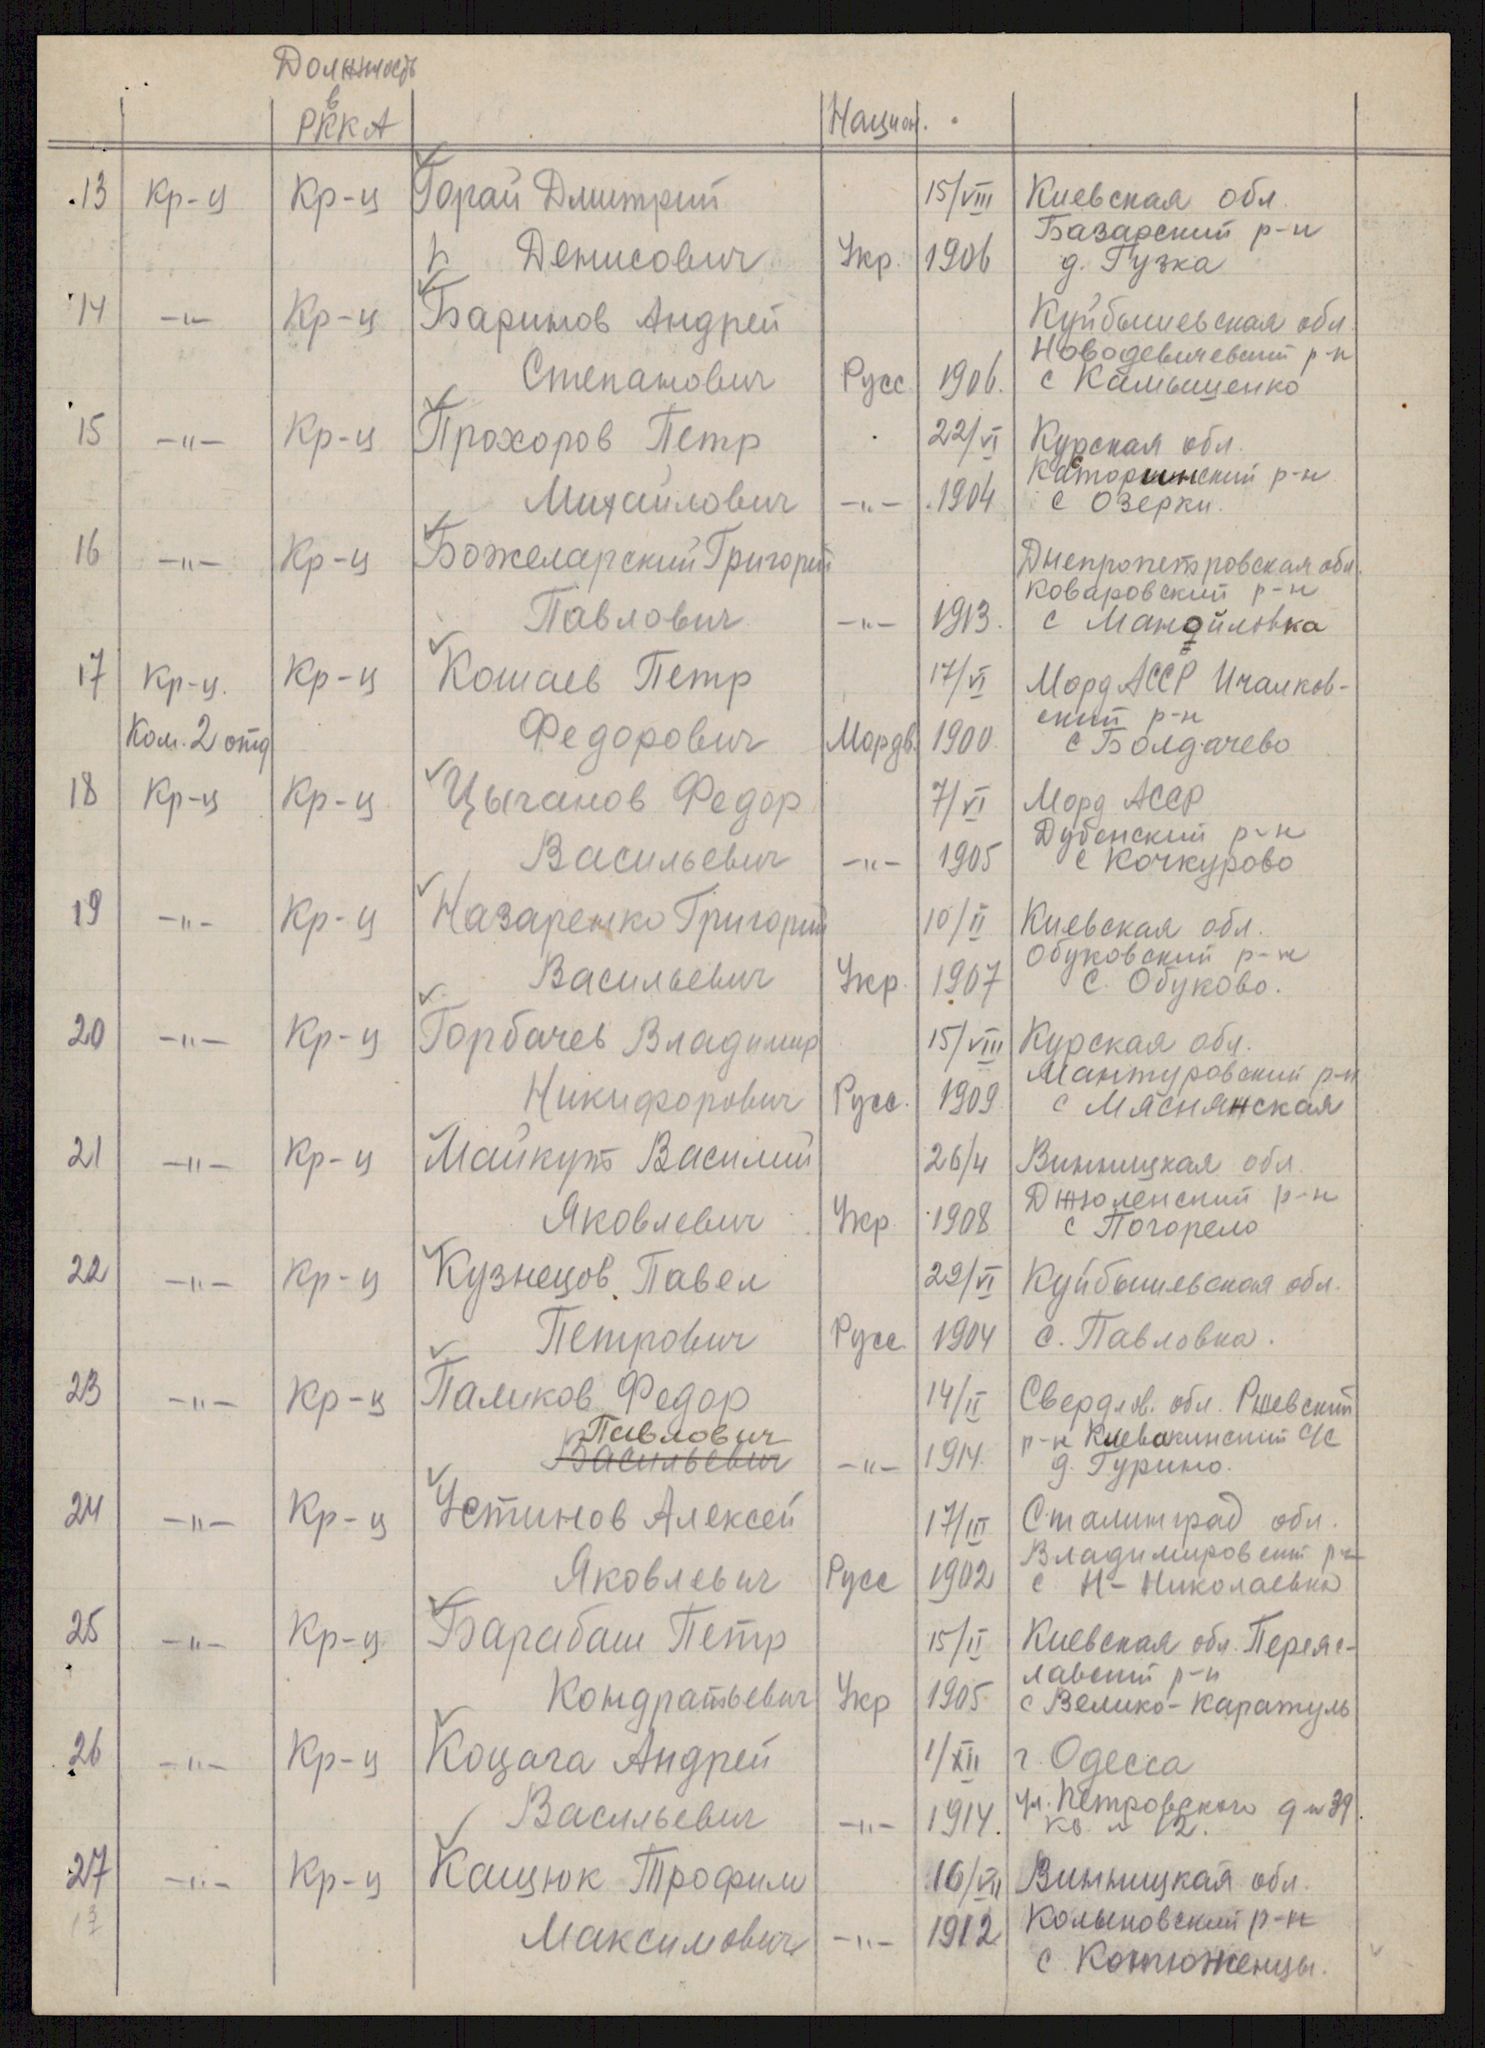 Должность
в
РККА Национ.
13 Кр-ц Кр-ц Горай Дмитрий 15/VIII Киевская обл.
Базарский р-н
Денисович Укр. 1906 д. Гузка
14 -"- Кр-ц Баринов Андрей Куйбышевская обл.
Новодевичевский р-н
Степанович Русс 1906. с Камышенко
15 -"- Кр-ц Прохоров Петр 22/VI Курская обл.
Касторинский р-н
Михайлович -"- 1904 с Озерки.
16 -"- Кр-ц Божеларский Григорий Днепропетровская обл.
Коваровский р-н
Павлович -"- 1913. с Манойловка
17 Кр-ц. Кр-ц Кошаев Петр 17/VI Морд АССР Ичалков-
ский р-н
Ком. 2 отд Федорович Мордв. 1900 с Болдачево
18 Кр-ц Кр-ц Цыганов Федор 7/VI Морд АССР
Дубенский р-н
Васильевич -"- 1905 с Кочкурово
19 -"- Кр-ц Назаренко Григорий 10/II Киевская обл.
Обуковский р-н
Васильевич Укр. 1907 с. Обуково.
20 -"- Кр-ц Горбачев Владимир 15/VIII Курская обл.
Мантуровский р-н
Никифорович Русс. 1909 с Мяснянская
21 -"- Кр-ц Майкут Василий 26/4 Винницкая обл
Джюленский р-н
Яковлевич Укр 1908 с Погорело
22 -"- Кр-ц Кузнецов Павел 29/VI Куйбышевская обл.
Петрович Русс. 1904 с. Павловка.
23 -"- Кр-ц Паликов Федор 14/II Свердлов. обл. Режевский
Павлович р-н Клевакинский с/с
Васильевич -"- 1914. д. Гурино.
24 -"- Кр-ц Устинов Алексей 17/III Сталинград обл.
Владимировский р-н
Яковлевич Русс 1902 с Н-Николаевка
25 -"- Кр-ц Барабаш Петр 15/II Киевская обл. Переяс-
лавский р-н
Кондратьевич Укр 1905 с Велико-Каратуль
26 -"- Кр-ц Коцага Андрей 1/XII г. Одесса
ул. Петровского д № 39.
Васильевич -"- 1914. кв № 12.
27 -"- Кр-ц Кащюк Трофим 16/VII Винницкая обл.
Колыновский р-н
Максимович -"- 1912
с. Контюженцы.